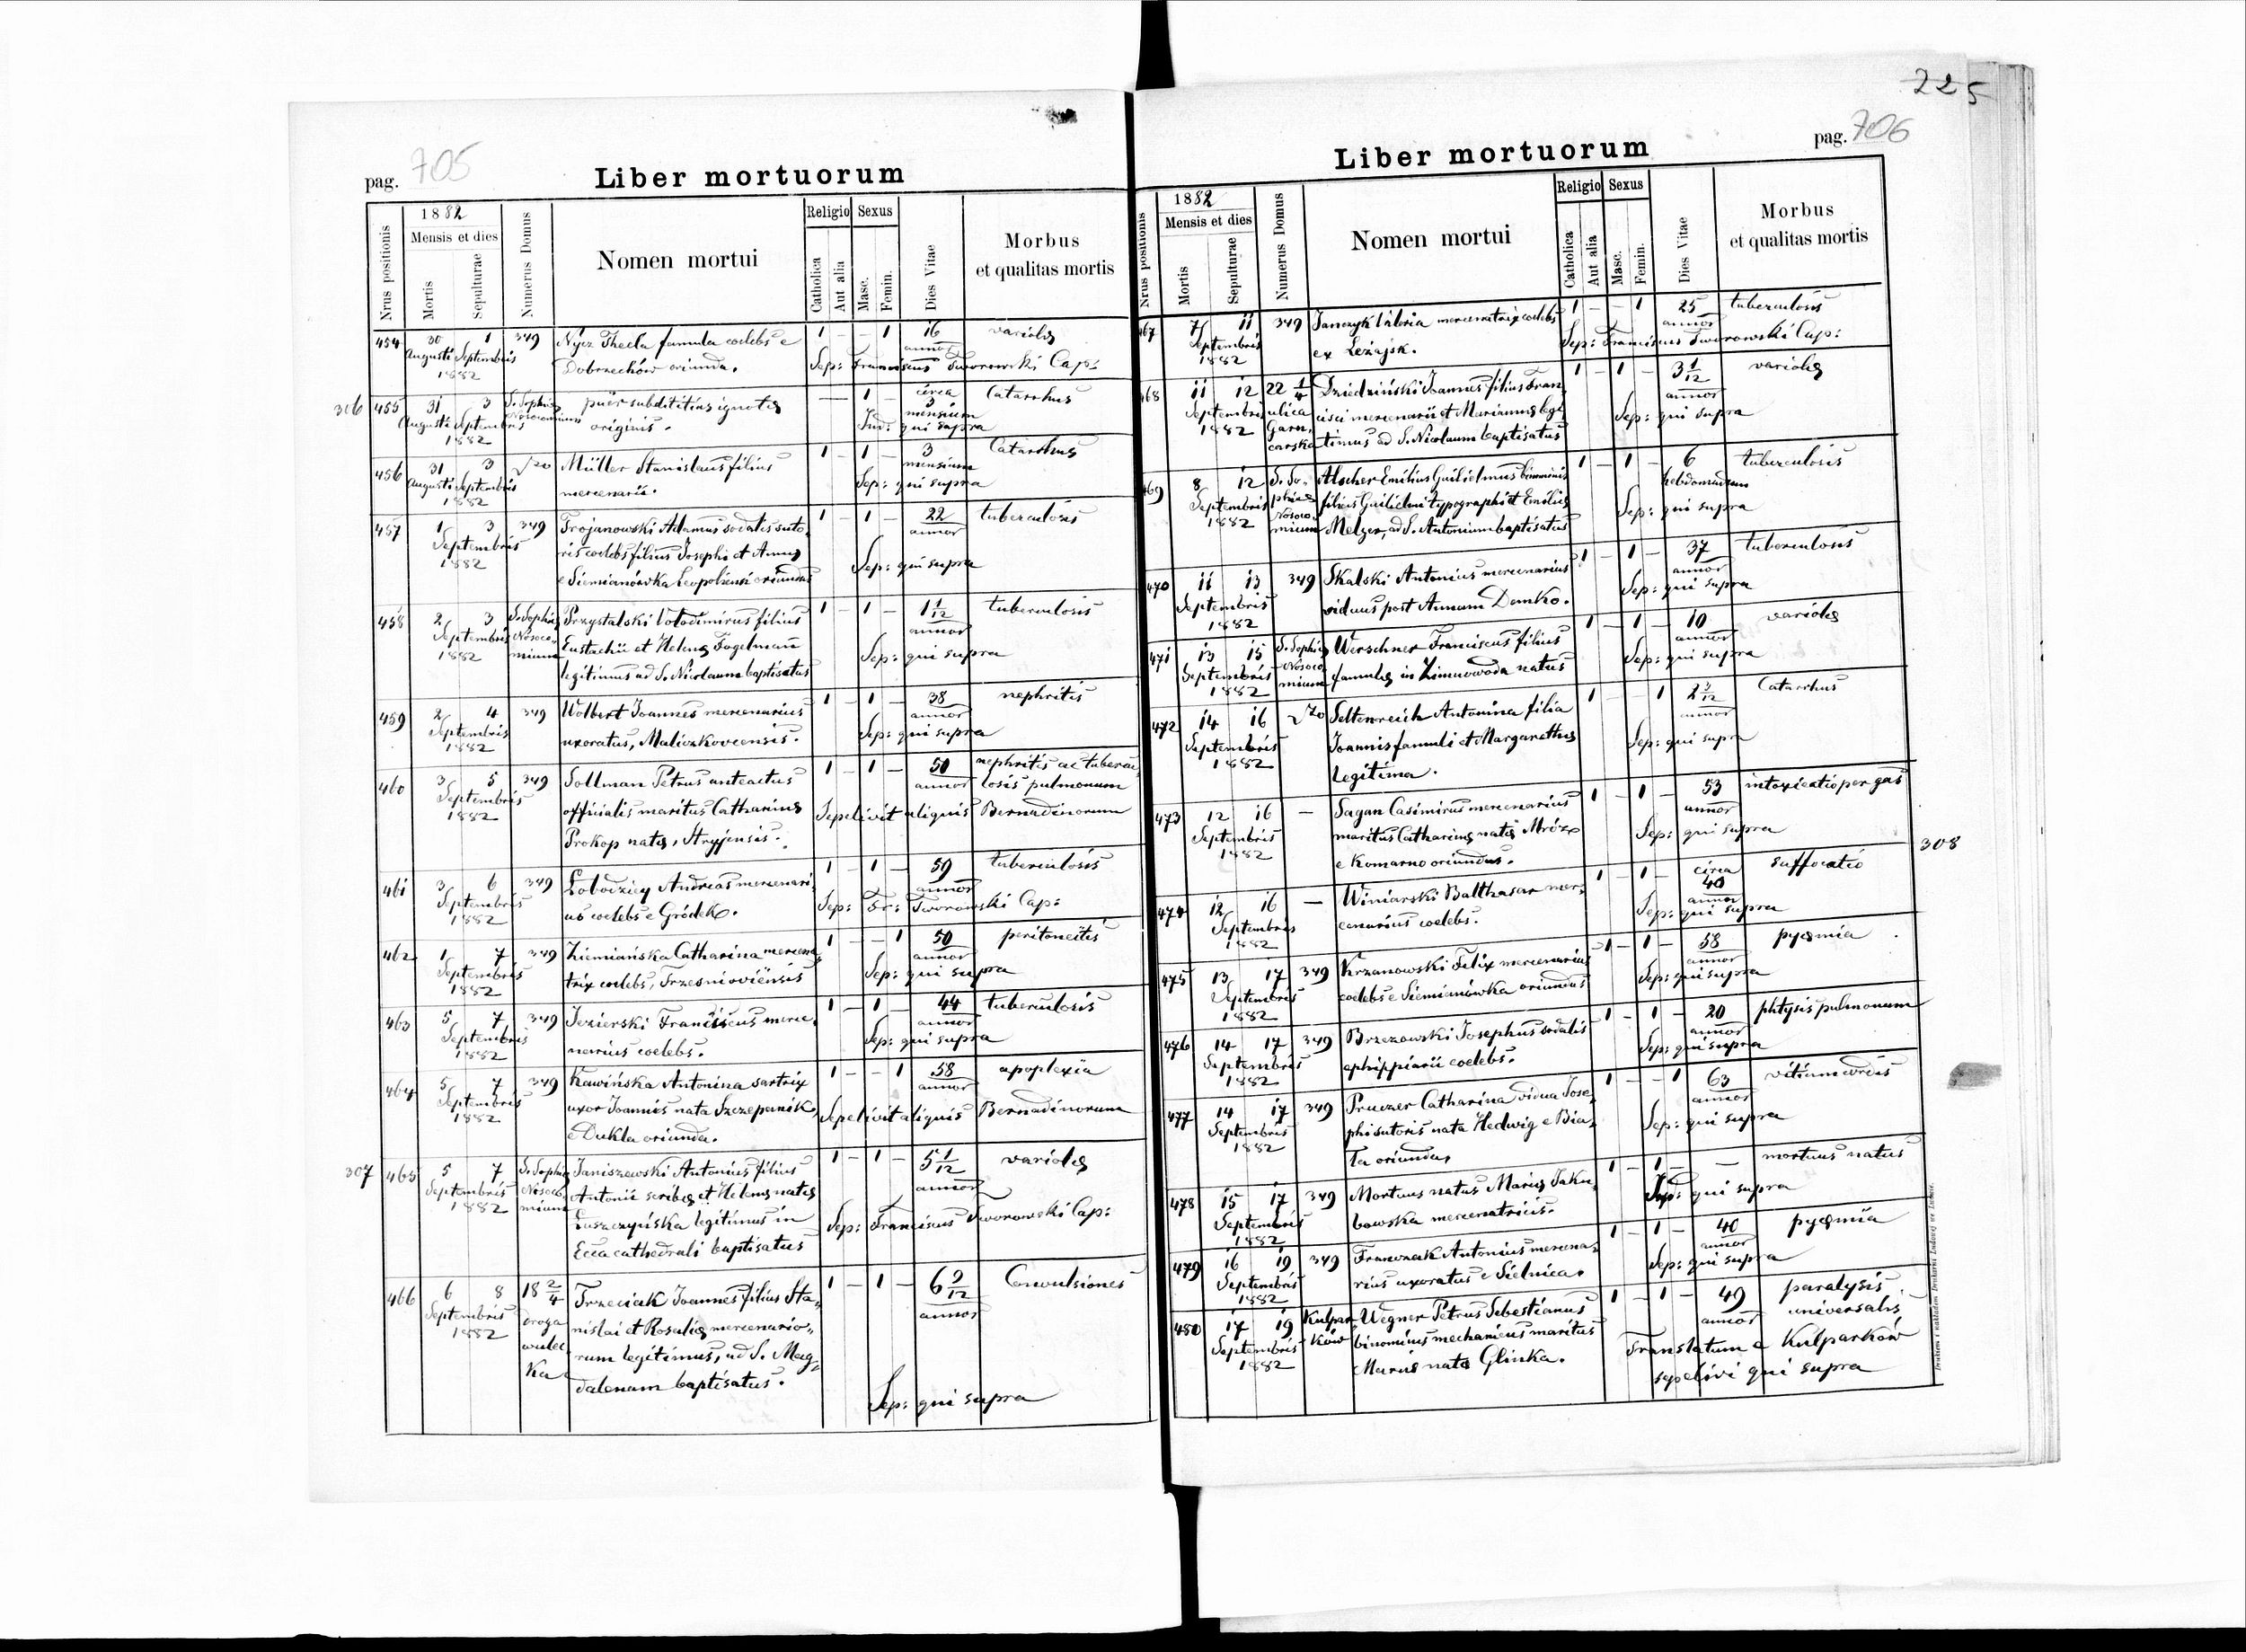 225
pag. 705
Liber mortuorum
Nrus positionis
1882
Mensis et dies
Mortis
Sepulturae
Numerus Domus
Nomen mortui
Religio
Catholica
Aut alia
Sexus
Masc.
Femin.
Dies Vitae
Morbus
et qualitas mortis
454 30 1 349 Nycz Thecla famula coelebs e 1 – – 1 16 variolę
Augusti Septembris Dobrzechów oriunda. annor
1882 Sep: Franciscus Tworowski Cap:
306 455 31 3 S. Sophię puer subdititius ignotę — 1 circa Catarrhus
Augusti Septembris Nosocomium originis. 3 mensium
1882 Ind: qui supra
456 31 3 √20 Müller Stanislaus filius 1 – 1 – 3 Catarrhus
Augusti Septembris mercenarii. mensium
1882 Sep: qui supra
457 1 3 349 Trojanowski Adamus sodalis suto, 1 – 1 – 22 tuberculosis
Septembris ris coelebs filius Josephi et Annę annor
1882 e Siemianówka Leopoliensi oriundus Sep: qui supra
458 2 3 S. Sophię Przystalski Volodimirus filius 1 – 1 – 1 1/12 tuberculosis
Septembris Nosoco, Eustachii et Helenę Fogelman annor
1882 mium legitimus ad S. Nicolaum baptisatus Sep: qui supra
459 2 4 349 Wolbert Joannes mercenarius 1 – 1 – 38 nephritis
Septembris uxoratus, Maliczkoviensis. annor
1882 Sep: qui supra
460 3 5 349 Sollman Petrus anteactus 1 – 1 – 50 nephritis ac tubercu,
Septembris officialis maritus Catharinę annor losis pulmonum
1882 Prokop natę, Stryjensis. Sepelivit aliquis Bernadinorum
461 3 6 349 Łobodziey Andreas mercenari, 1 – 1 – 59 tuberculosis
Septembris us coelebs e Gródek. annor
1882 Sep: Fr: Tworowski Cap:
462 1 7 349 Ziemiańska Catharina mercena, 1 – – 1 50 peritoneitis
Septembris trix coelebs, Trzesnioviensis annor
1882 Sep: qui supra
463 5 7 349 Jezierski Franciscus merce, 1 – 1 – 44 tuberculosis
Septembris narius coelebs. annor
1882 Sep: qui supra
464 5 7 349 Kawińska Antonina sartrix 1 – – 1 58 apoplexia
Septembris uxor Joannis nata Szczepanik, annor
1882 e Dukla oriunda. Sepelivit aliquis Bernadinorum
307 465 5 7 S. Sophię Janiszewski Antonius filius 1 – 1 – 5 1/12 variolę
Septembris Nosoco, Antonii scribę et Helenę natę annor
1882 mium Łuszczyńska legitimus in
Ecca cathedrali baptisatus Sep: Franciscus Tworowski Cap:
466 6 8 18 2/4 Trzeciak Joannes filius Sta, 1 – 1 – 6 9/12 Convulsiones
Septembris droga nislai et Rosalię mercenario, annor
1882 wulec rum legitimus, ad S. Mag,
ka dalenam baptisatus.
Sep: qui supra
pag. 706
Liber mortuorum
Nrus positionis
1882
Mensis et dies
Mortis
Sepulturae
Numerus Domus
Nomen mortui
Religio
Catholica
Aut alia
Sexus
Masc.
Femin.
Dies Vitae
Morbus
et qualitas mortis
467 7 11 349 Janczyk Valeria mercenatrix coelebs 1 – – 1 25 tuberculosis
Septembris ex Leżajsk. annor
1882 Sep: Franciscus Tworowski Cap:
468 11 12 22 1/4 Dziedziński Joannes filius Fran, 1 – 1 – 3 1/12 variolę
Septembris ulica cisci mercenarii et Mariannę legi, annor
1882 Garn, carska timus ad S. Nicolaum baptisatus Sep: qui supra
469 8 12 S. So, Alscher Emilius Guilielmus binominis 1 – 1 – 6 tuberculosis
Septembris phię filius Guilielmi typographi et Emilię hebdomadum
1882 Nosoco, mium Melzer, ad S. Antonium baptisatus Sep: qui supra
470 11 13 349 Skalski Antonius mercenarius 1 – 1 – 37 tuberculosis
Septembris viduus post Annam Demko. annor
1882 Sep: qui supra
471 13 15 S. Sophię Werschner Franciscus filius 1 – 1 – 10 variolę
Septembris Nosoco, famulę in Zimnawoda natus annor
1882 mium Sep: qui supra
472 14 16 √20 Seltenreich Antonina filia 1 – 1 2 3/12 Catarrhus
Septembris Joannis famuli et Margarethę annor
1882 legitima. Sep: qui supra
473 12 16 – Sagan Casimirus mercenarius 1 – 1 – 53 intoxicatio per gas
Septembris maritus Catharinę natę Mróz annor
1882 e Komarno oriundus. Sep: qui supra
308
474 12 16 – Winiarski Balthasar mer, 1 – 1 – circa suffocatio
Septembris cenarius coelebs. 40 annor
1882 Sep: qui supra
475 13 17 349 Krzanowski Felix mercenarius 1 – 1 – 58 pyęmia
Septembris coelebs e Siemianówka oriundus annor
1882 Sep: qui supra
476 14 17 349 Brzezowski Josephus sodalis 1 – 1 – 20 phtysis pulmonum
Septembris ephippiarii coelebs. annor
1882 Sep: qui supra
477 14 17 349 Pruczer Catharina vidua Jose, 1 – – 1 63 vitium cordis
Septembris phi sutoris nata Hedwig e Bia, annor
1882 ła oriunda, Sep: qui supra
478 15 17 349 Mortuus natus Marię Jaku, 1 – 1 – – mortuus natus
Septembris bowska mercenatricis.
1882 qui supra
479 16 19 349 Franczak Antonius mercena, 1 – 1 – 40 pyęmia
Septembris rius uxoratus e Sielnica. annor
1882 Sep: qui supra
480 17 19 Kulpar, Wegner Petrus Sebestianus 1 – 1 – 49 paralysis
Septembris ków binominus mechanicus maritus annor universalis
1882 Marię natę Glinka. Translatum e Kulparków
sepelivi qui supra